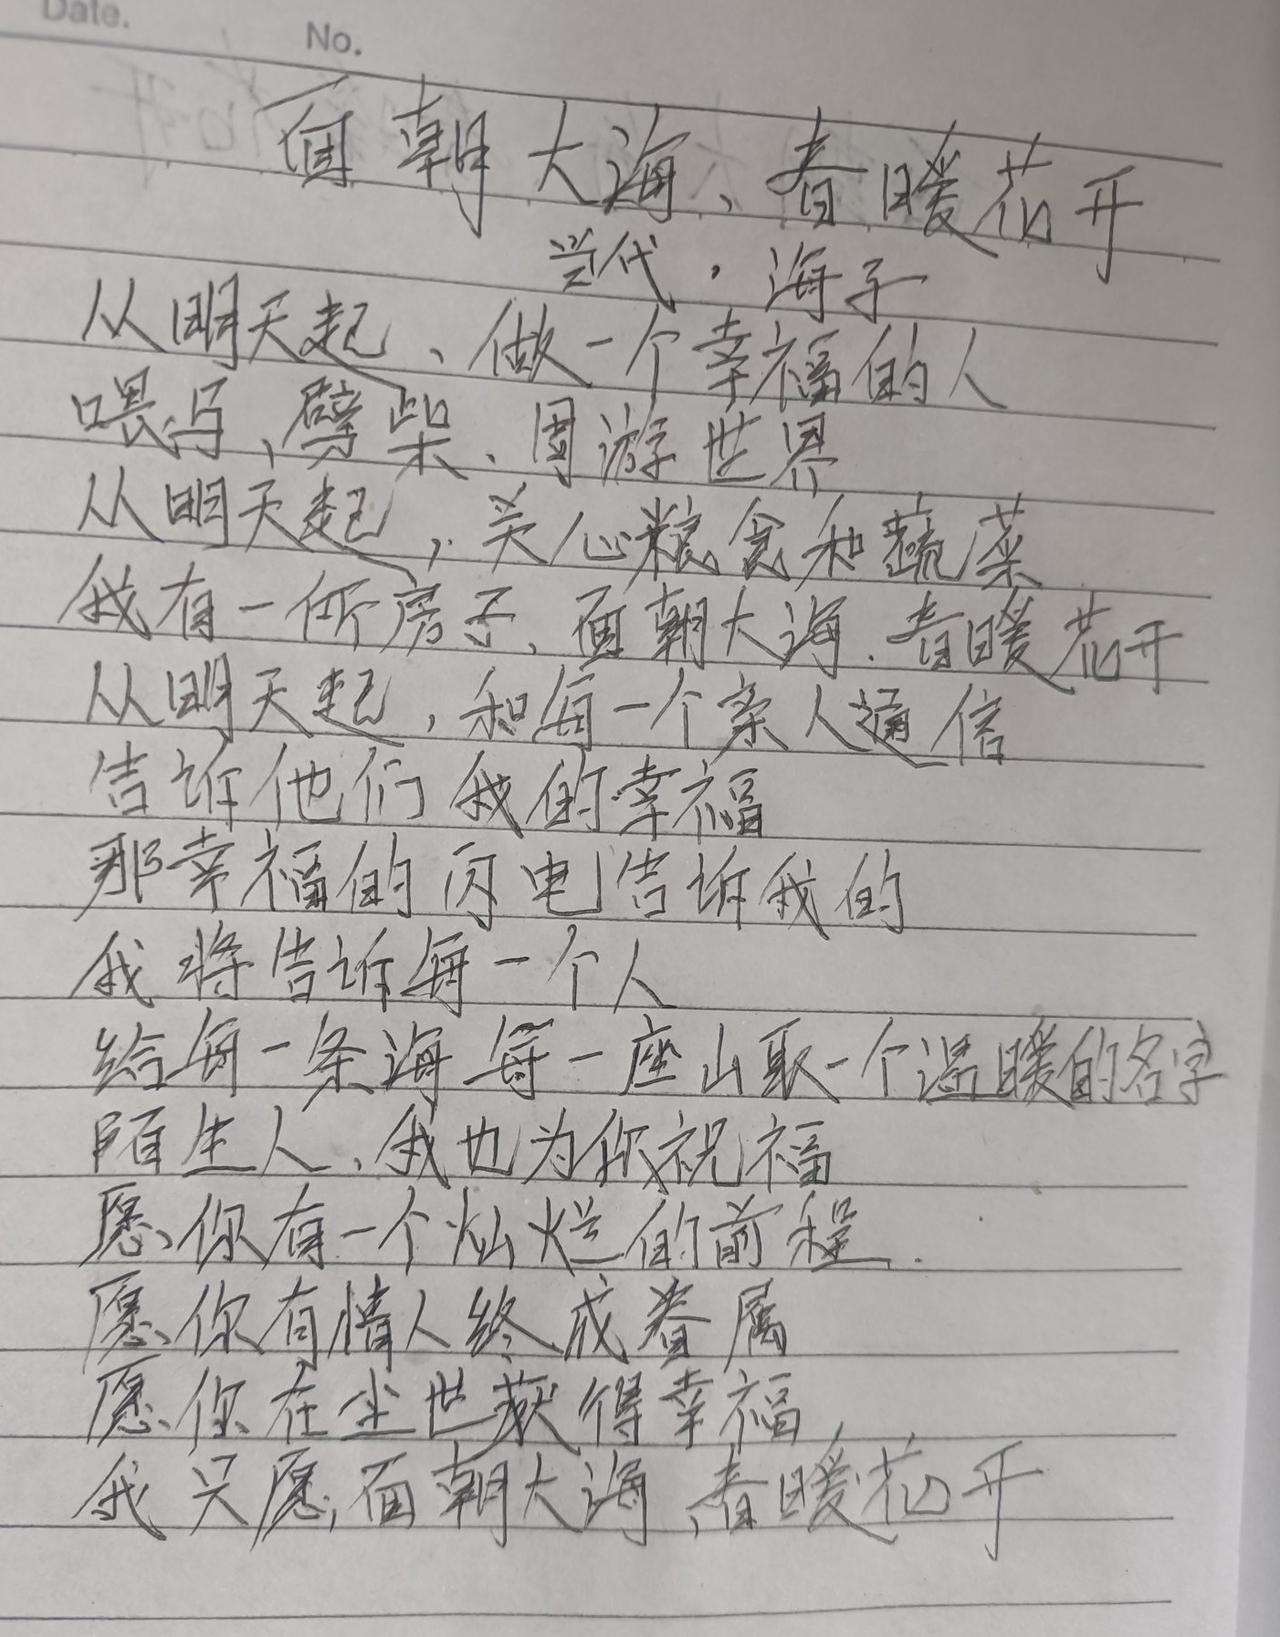 Date.
No.
面朝大海、春暖花开
当代.海子
从明天起、做一个幸福的人
喂马、劈柴、周游世界
从明天起,关心粮食和蔬菜
我有一所房子,面朝大海.春暖花开
从明天起,和每一个亲人通信
告诉他们我的幸福
那幸福的闪电告诉我的
我将告诉每一个人
给每一条海每一座山取一个温暖的名字
陌生人、我也为你祝福
愿你有一个灿烂的前程.
愿你有情人终成眷属
愿你在尘世获得幸福,
我只愿,面朝大海、春暖花开